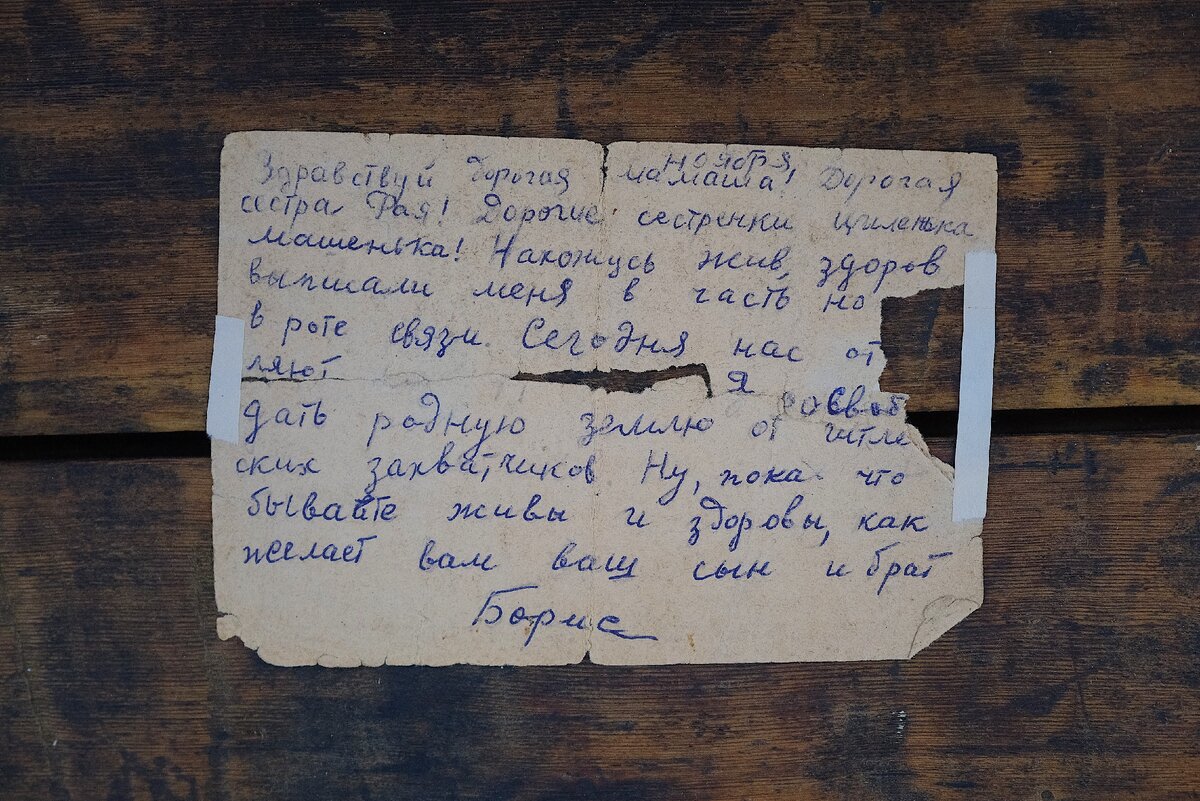 ноября
Здравствуй дорогая мамаша! Дорогая
сестра Рая! Дорогие сестренки Циленька
Машенька! Нахожусь жив, здоров
выписали меня в часть но
в роте связи. Сегодня нас от
ляют Я освоб
дать родную землю от гитле
ских захватчиков Ну, пока что
бывайте живы и здоровы, как
желает вам ваш сын и брат
Борис